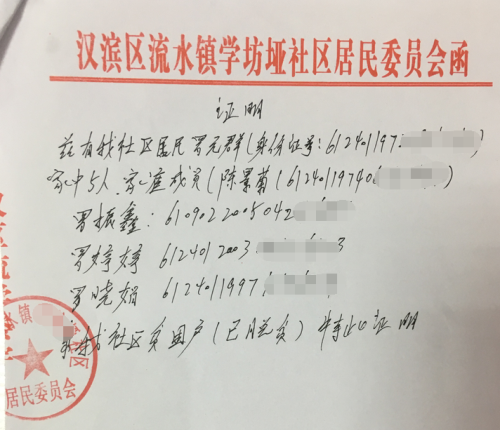 汉滨区流水镇学坊垭社区居民委员会函
证明
兹有我社区居民罗元群(身份证号:612401197
家中5人、家庭成员(陈景菊(6124019740
罗振鑫:6109022005042
罗婷婷 6124012003 3
罗晓娟 6124011997
我社区贫困户(已脱贫)特此证明
镇 社区
居民委员会